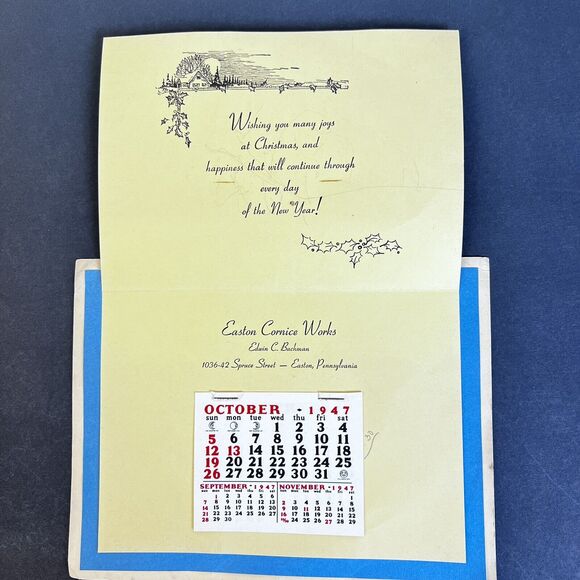 Wishing you many joys
at Christmas, and
happiness that will continue through
every day
of the New Year!
Easton Cornice Works
Edwin C. Bachman
1036-42 Spruce Street — Easton, Pennsylvania
OCTOBER • 1947
sun mon tue wed thu fri sat
1 2 3 4
5 6 7 8 9 10 11
12 13 14 15 16 17 18
19 20 21 22 23 24 25
26 27 28 29 30 31
SEPTEMBER • 1947
1 2 3 4 5 6
7 8 9 10 11 12 13
14 15 16 17 18 19 20
21 22 23 24 25 26 27
28 29 30
NOVEMBER • 1947
1
2 3 4 5 6 7 8
9 10 11 12 13 14 15
16 17 18 19 20 21 22
24 25 26 27 28 29